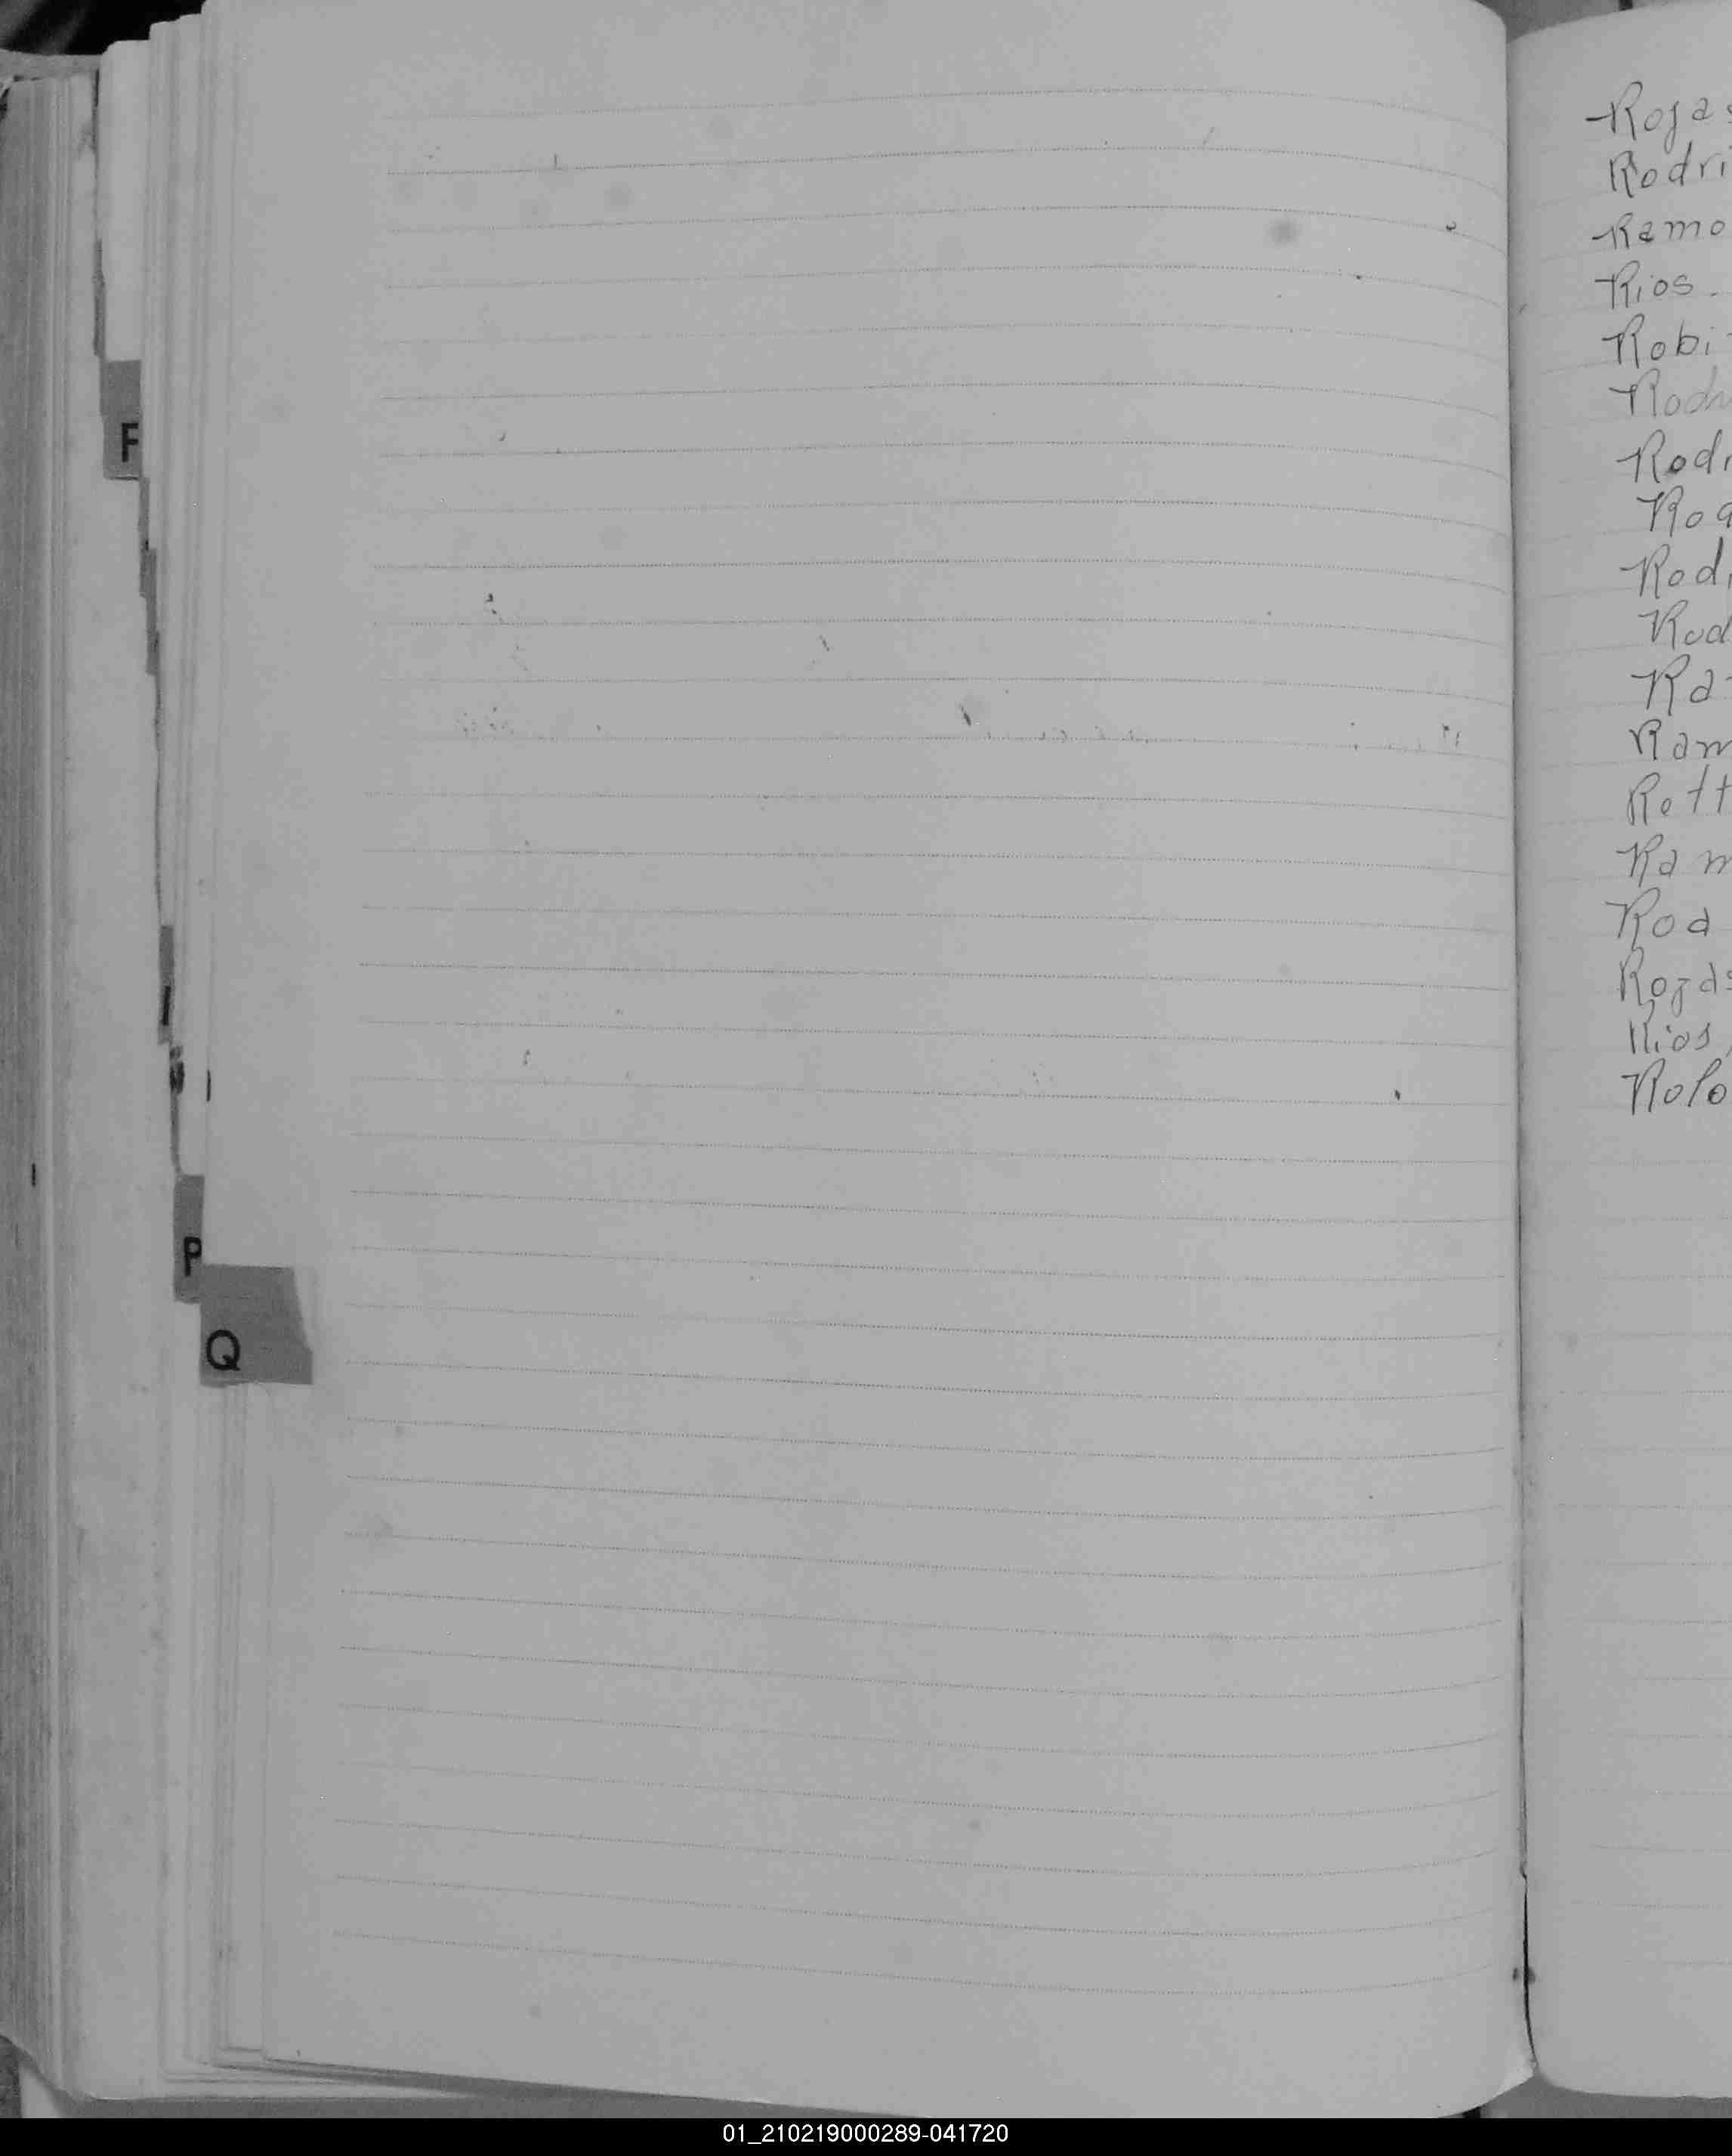 F
I
P
Q
Rojas
Rodri
Ramo
Rios.
Robi
Rodr
Rodr
Rod
Rodr
Rod
Ra
Ram
Rett
Ram
Rod
Rojas
Rios,
Rolo
01_210219000289-041720